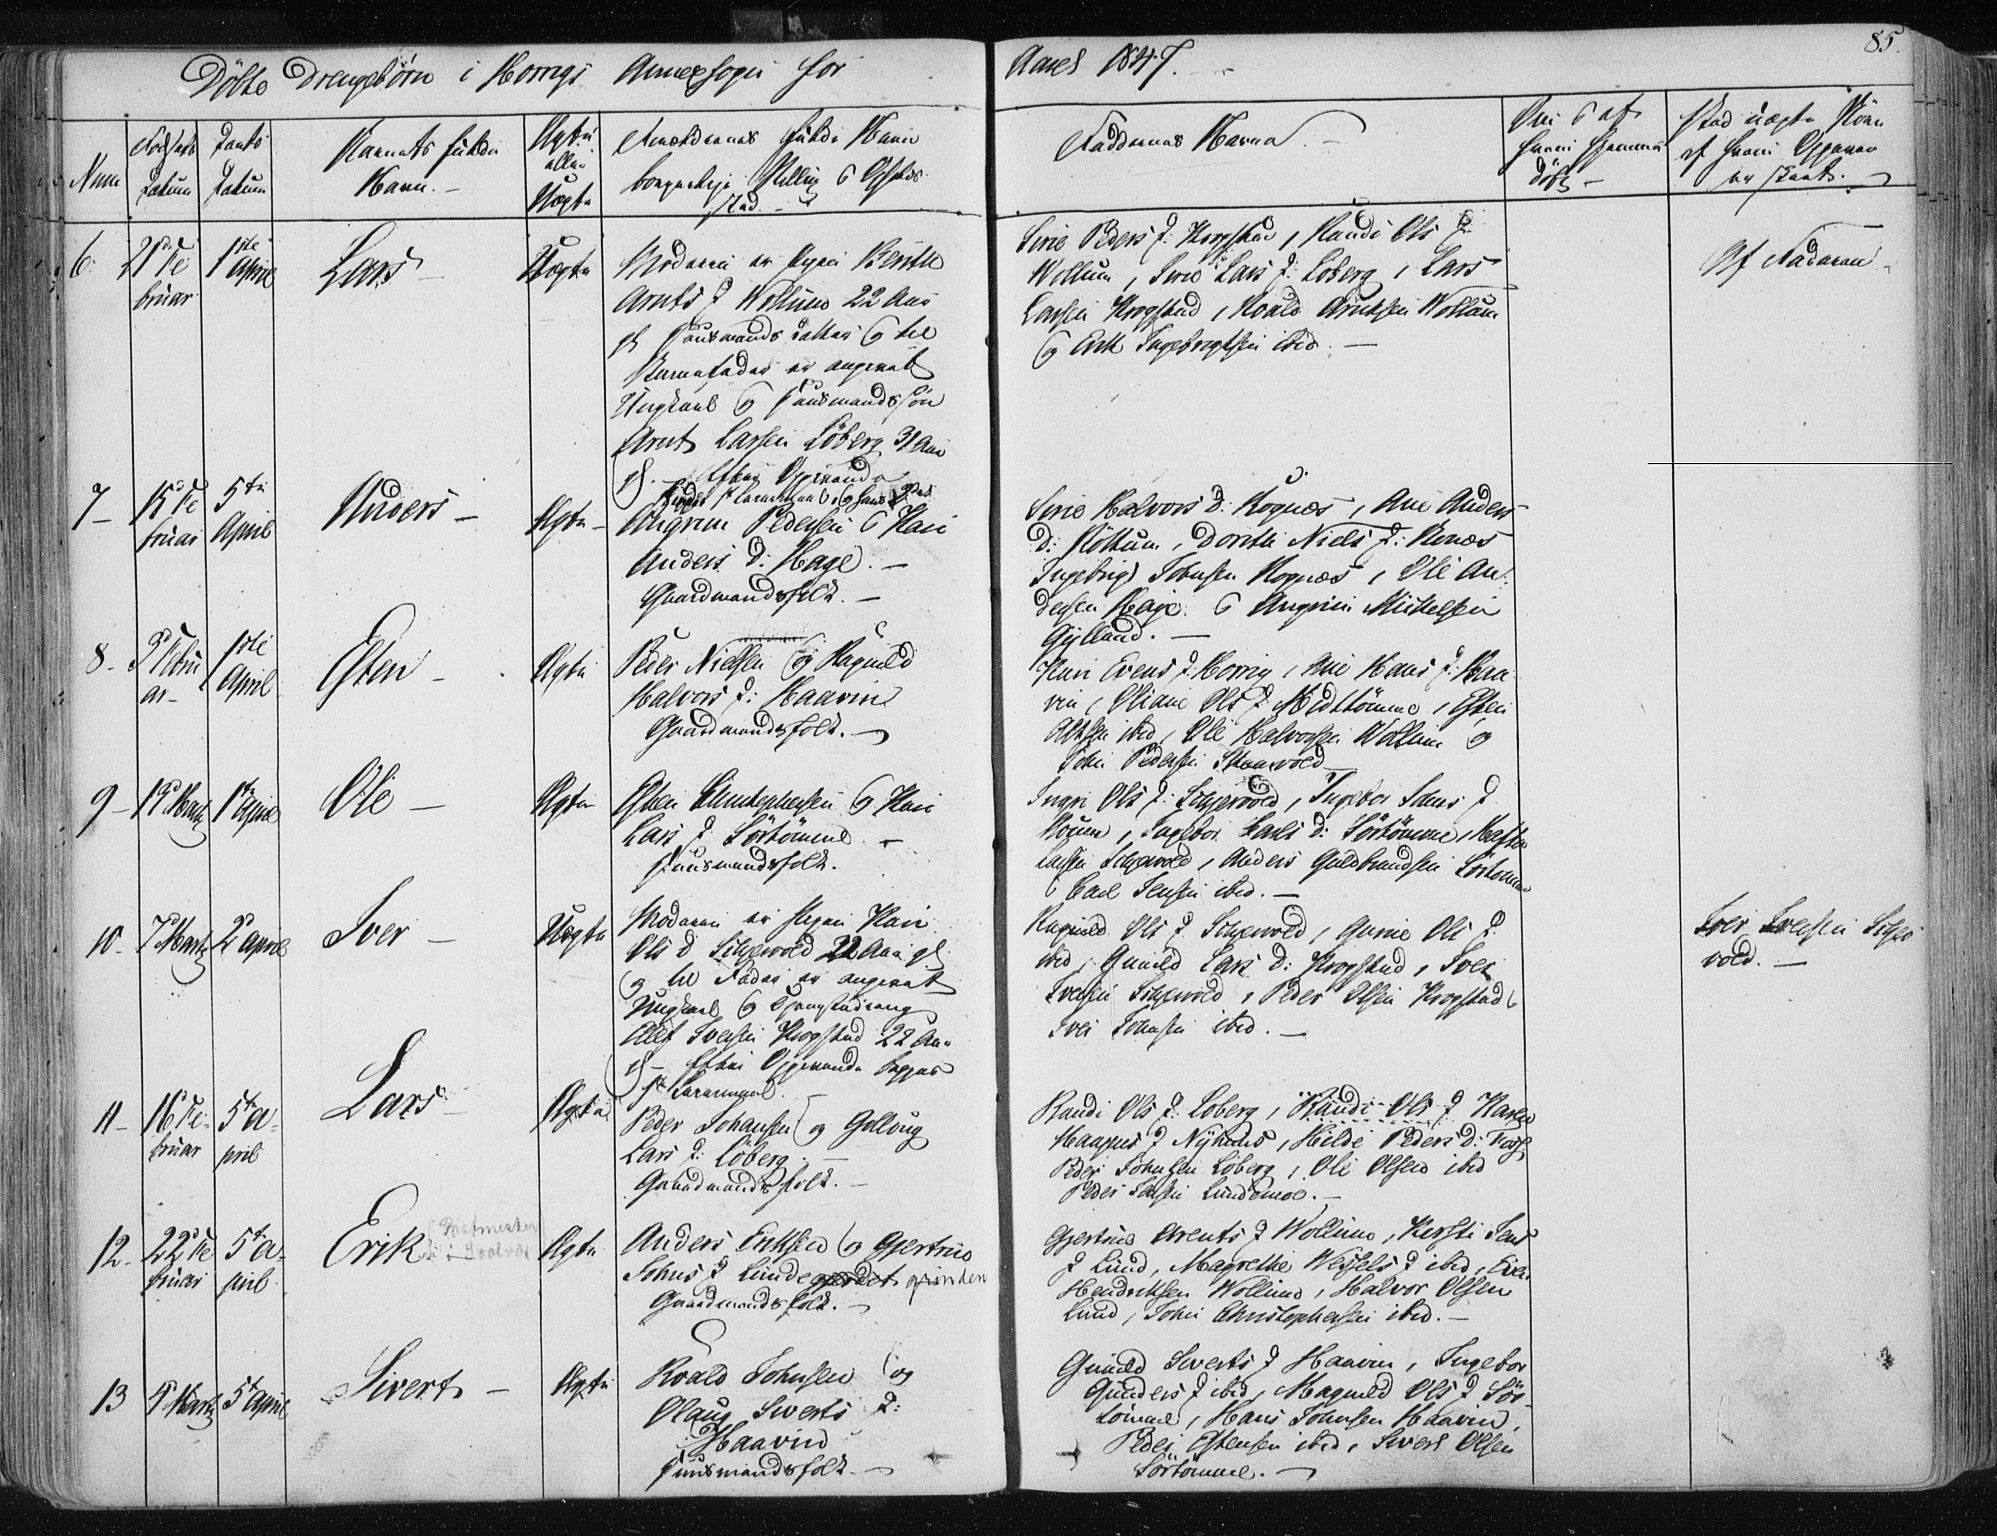 Döbte Drengebørn i Horrigs Annexsogn for Aaret 1847.
85.
Num
Fødsels Datum
Daabs Datum
Barnets fulde Navn.
Ægte eller Uægte
Forældrenes fulde Navn
borgerlige Stilling & Opholds
sted.
Faddernes Navne.
Om & af
hvem hjemme
döbt
6.
21d Fe
bruar
1ste April
Lars
Uægte
Moderen er Pigen Berith
Arnts D Wollum 22 Aar
gl Huusmands datter og til
Barnefader er angivet
Ungkarl og Huusmandssøn
Arnt Larsen Löberg 31 Aar
gl. - Efter Opgivende
Sirie Peders D: Krogstad, Randi Ols D:
Wollum, Sirie Lars D: Löberg, Lars
Larsen Krogstad, Roald Arntsen Wollum
og Erik Ingebrigtsen ibid.
Af Faderen
7
15d Fe
bruar
5te
April
Anders
Ægte
Angrim Pedersen & Kari
Anders D: Hage.
Gaardmandsfolk.
Sirie Halvors D: Rognæs, Ane Anders
D: Röttum, Dorthe Niels D: Renæs
Ingebrigt Johnsen Rognæs, Ole An-
dersen Hage & Angrim Mikkelsen
Gylland.
8.
3d Febru
ar
1ste
April
Esten
Ægte
Peder Nielsen og Ragnild
Halvors D: Haavin
Gaardmandsfolk.
Kari Evens D: Horrig, Ane Hans D: Haa
vin, Oliane Ols D Midttömme, Esten
ibid, Ole Halvorsen Wollum og
John Pedersen
9
19d Martz
1ste April
Ole
Ægte
Esten Christophersen og Kari
Lars D Sörtömme.
Huusmandsfolk.
Ingri Ols D: Schjervold, Ingebor Jens D
Ingebor Lars D: Sörtömme,
Larsen Schjervold, Anders Guldbrandsen Sörtömme
& Carl Jensen ibid.
10.
7d Martz
2d April
Iver
Uægte
Moderen er Pigen Kari
Ols D Schjervold 22 Aar gl
og til Fader er angivet
Ungkarl og Tjenestedreng
Olef Iversen Krogstad 22 Aar
gl - Efter Opgivende begges
1ste Leiermaal.
Ragnild Ols D Schjervold, Gurine Ols D.
ibid, Gunild Lars D: Krogstad, Iver
Iversen Schjervold, Peder Olsen Krogstad,
Iver Johnsen ibid.
Iver Iversen Schjer
vold.
11
16d Fe-
bruar
5te A-
pril
Lars
Ægte
Peder Johansen og Gollaug
Lars D: Löberg.
Gaardmandsfolk.
Randi Ols D: Löberg, Randi Ols D
Haagens D Nyhuus, Hilde Peders D:
Peder Johnsen Löberg, Ole Olsen ibid
Peder Larsen Lundemoe.
12.
22d Fe
bruar
5te A-
pril
Erik
Ægte
Anders Eriksen og Gjertrud
Johns D Lundegrinden
Gaardmandsfolk.
Gjertrud Arents D Wollum, Kersti Jens
D Lund, Magrethe Wessels D ibid, Even
Hendriksen Wollum, Halvor Olsen
Lund, John Christophersen ibid.
13
4d Martz
5te April
Sivert
Ægte
Roald Johnsen og
Olaug Siverts D:
Haavin
Huusmandsfolk.
Gunild Siverts D Haavin, Ingebor
Gunders D ibid, Magnild Ols D Sör-
tömme, Hans Johnsen Haavin,
Peder Estensen ibid, Sivert Olsen
Sörtömme.